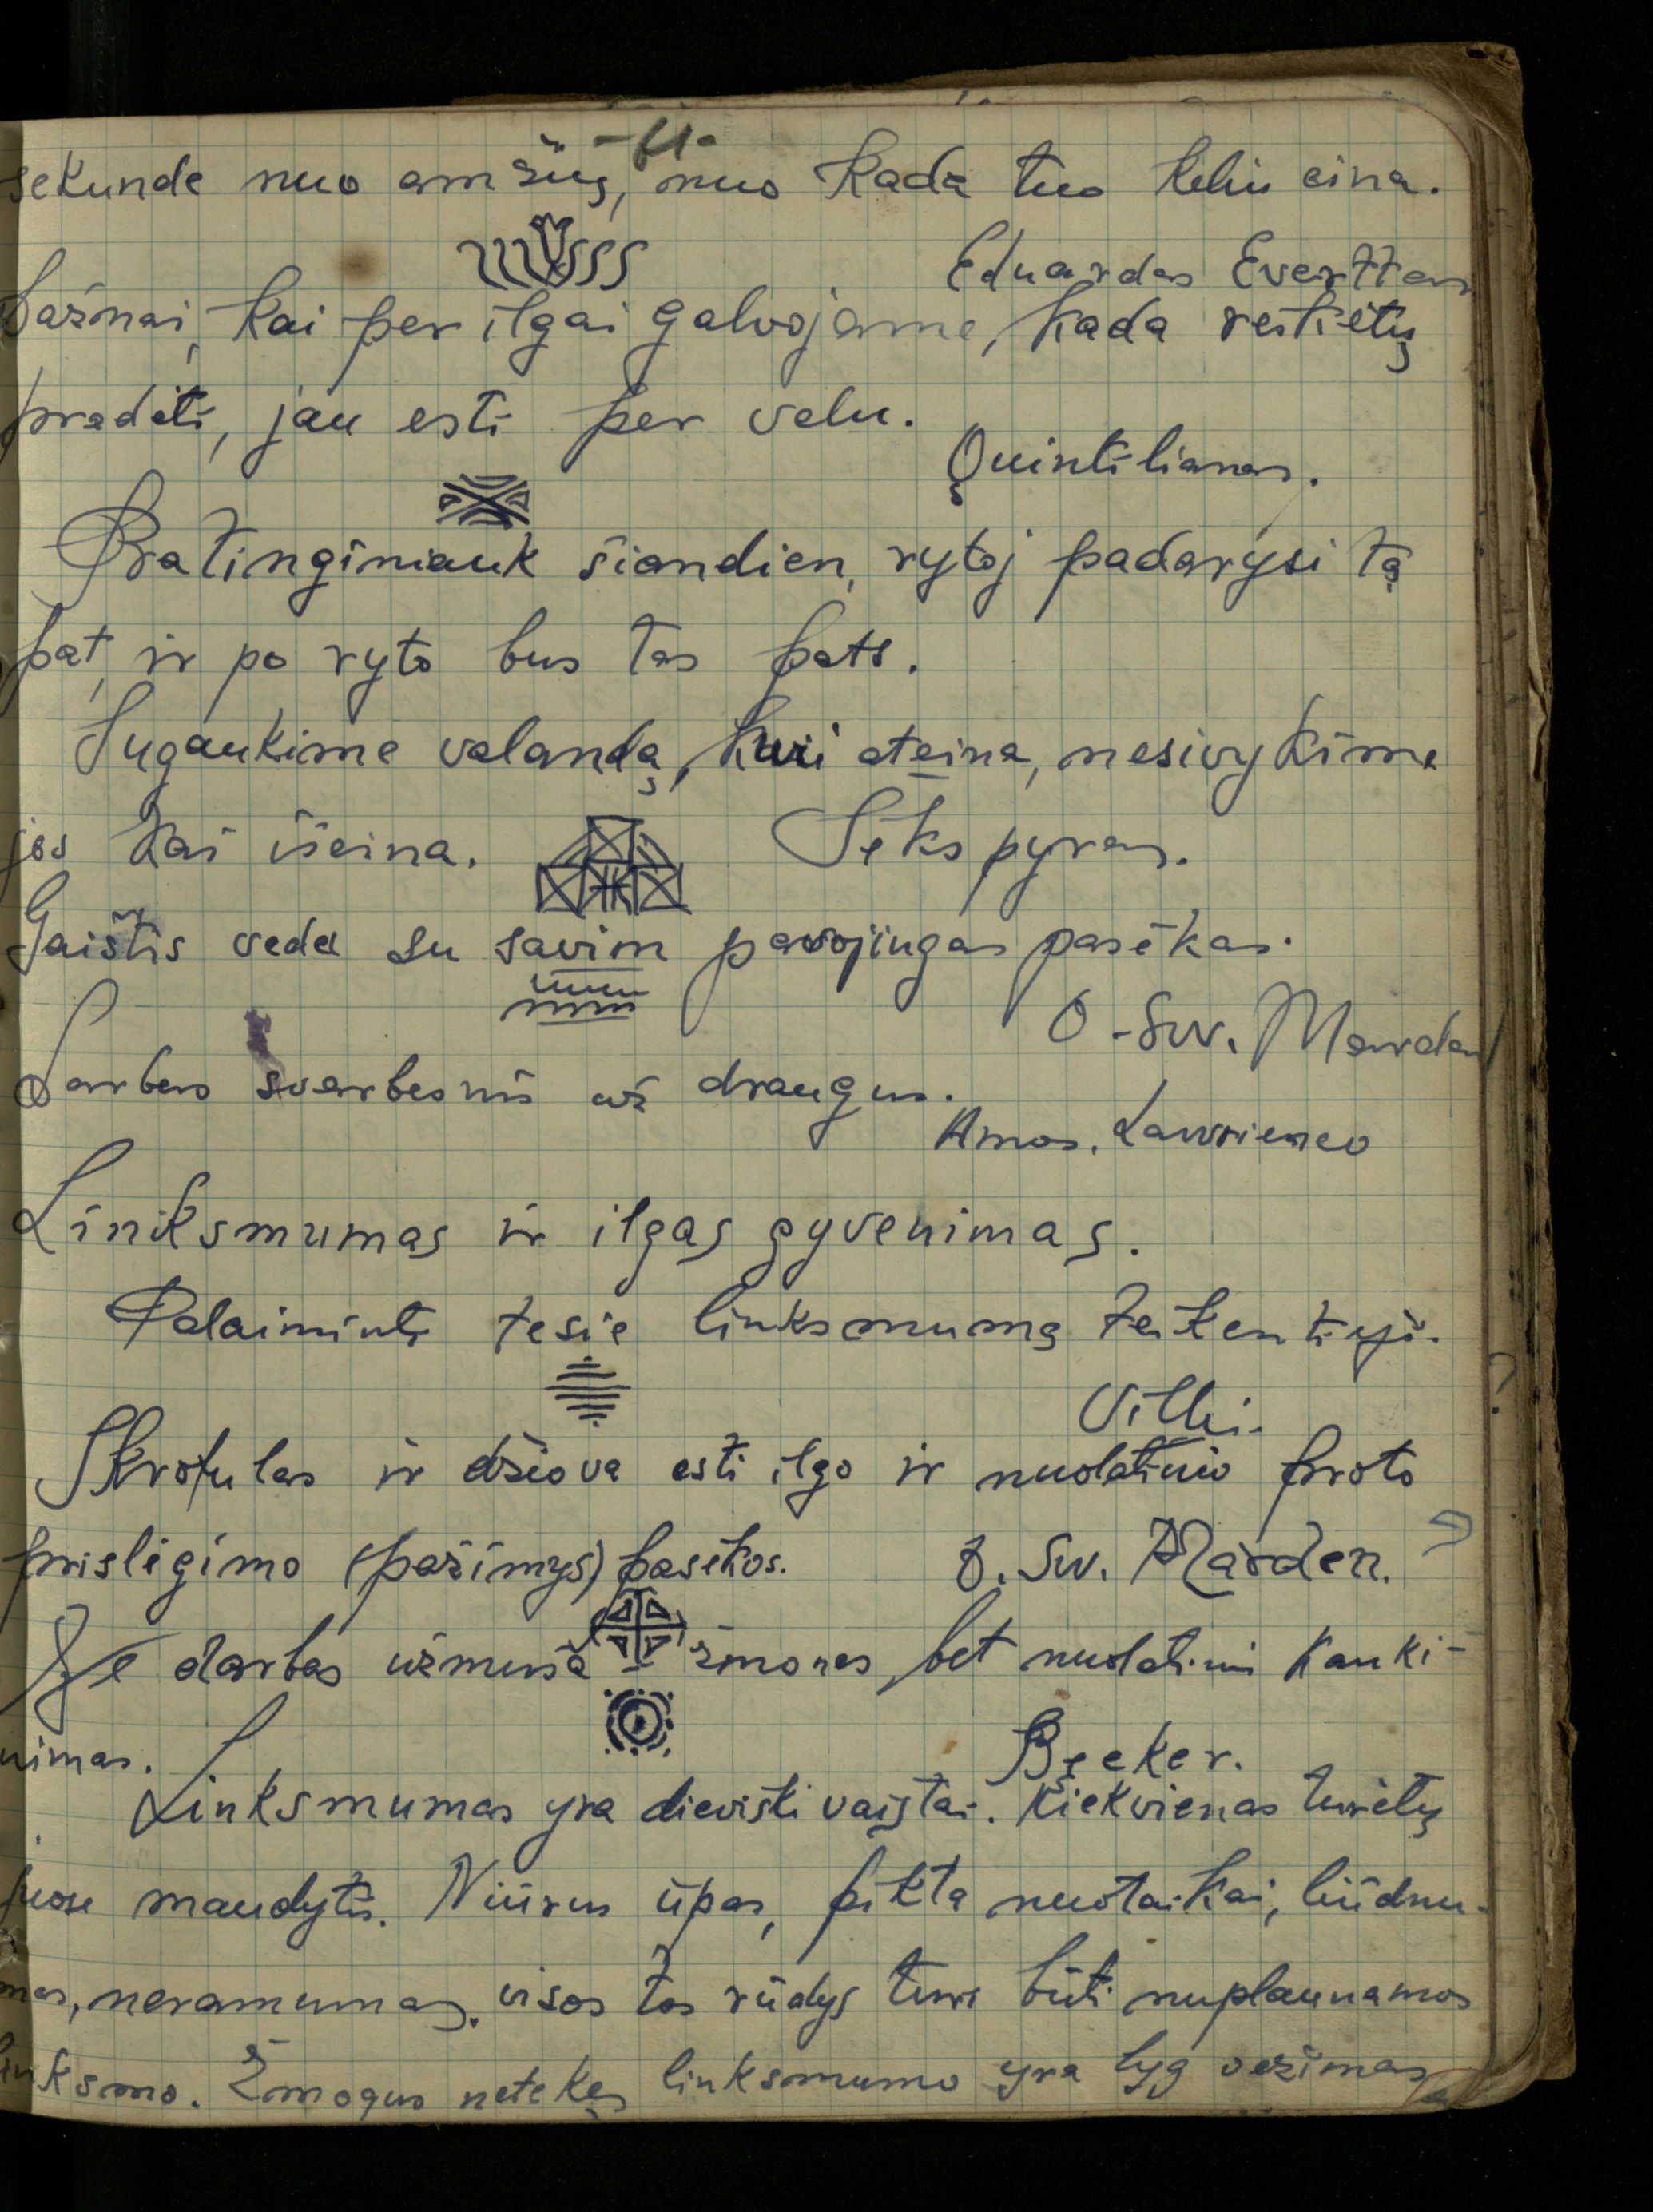 -61-
sekunde nuo amžių, nuo kada tuo keliu eina.
Eduardas Everttas
Dažnai, kai per ilgai galvojame, kada reikėtų
pradėti, jau esti per vėlu.
Quintilianas.
Pratinginiauk šiandien, rytoj padarysi tą
pat, ir po ryto bus tas pats.
Sugaukime valandą, kuri ateina, nesivykime
jos kai išeina.
Šekspyras.
Gaištis veda su savim pavojingas pasėkas.
O-Sw. Marden
Darbas svarbesnis už draugus.
Amos. Lawrienco
Linksmumas ir ilgas gyvenimas.
Palaiminti tesie linksmumą teikentieji.
Villi.
Skrofulas ir džiova esti ilgo ir nuolatinio proto
prislėgimo (pažimys) pasėkos.
O. Sw. Marden.
Ne darbas užmuša žmones, bet nuolatinis kanki-
nimas.
Beeker.
Linksmumas yra dieviški vaistai. Kiekvienas turėtų
juose maudytis. Niūrus ūpas, pikta nuotaikai, liūdnu-
mas, neramumas, visos tos rūdys turi būti nuplaunamos
linksmo. Žmogus netekęs linksmumo yra lyg vežimas